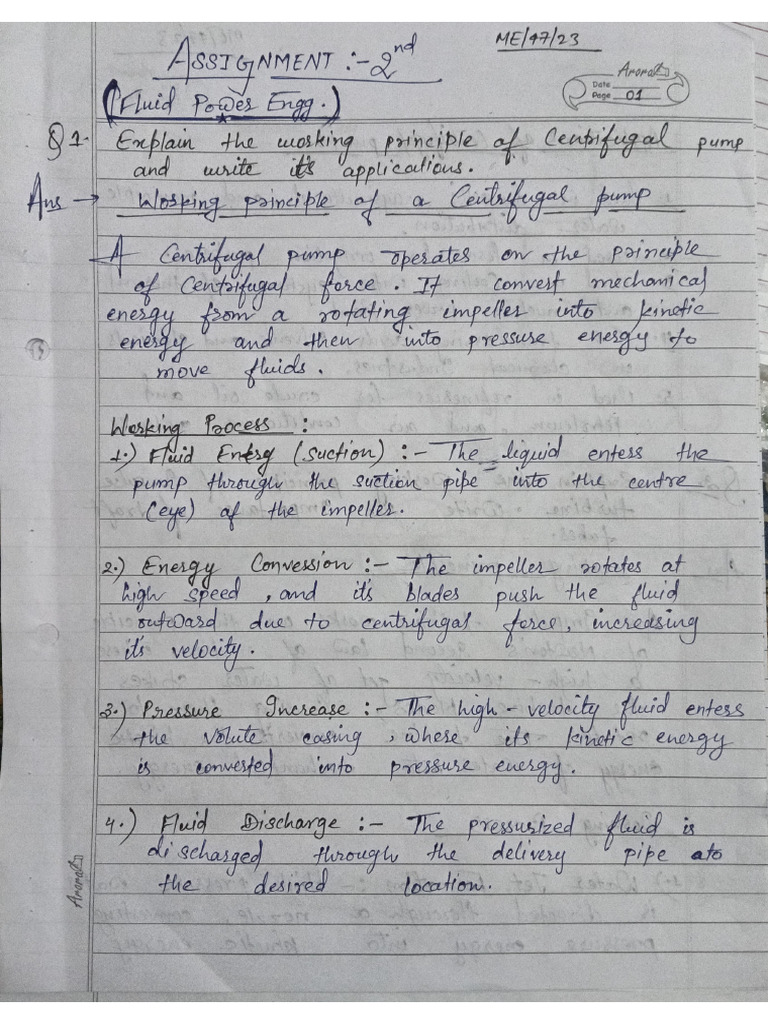 ME/47/23
ASSIGNMENT :- 2nd
Arora
Date
Page 01
(Fluid Power Engg.)
Q 1. Explain the working principle of Centrifugal pump
and write it's applications.
Ans → Working principle of a Centrifugal pump
A Centrifugal pump operates on the principle
of Centrifugal force. It convert mechanical
energy from a rotating impeller into kinetic
energy and then into pressure energy to
move fluids.
Working Process :
1.) Fluid Entry (Suction) :- The liquid enters the
pump through the suction pipe into the centre
(eye) of the impeller.
2.) Energy Conversion :- The impeller rotates at
high speed, and it's blades push the fluid
outward due to centrifugal force, increasing
it's velocity.
3.) Pressure Increase :- The high-velocity fluid enters
the volute casing, where its kinetic energy
is converted into pressure energy.
4.) Fluid Discharge :- The pressurized fluid is
discharged through the delivery pipe to
the desired location.
Arora